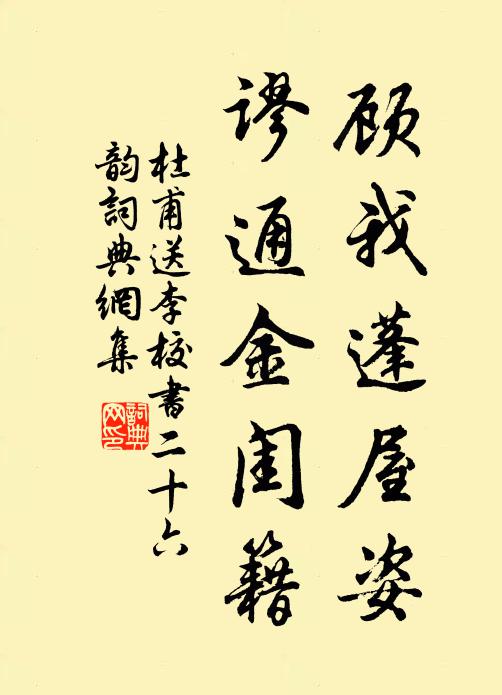 顾我蓬屋姿
谬通金闺籍
杜甫送李校书二十六
韵词典网集
詞典
网印